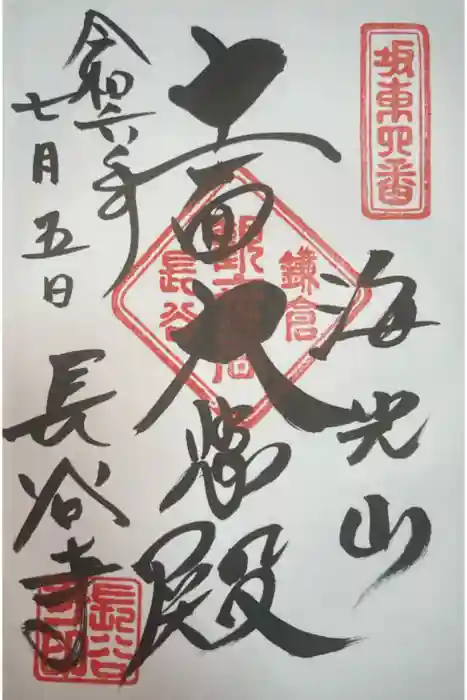 坂東四番
海光山
十一面大悲殿
鎌倉
長谷
令和六年
七月五日
長谷寺